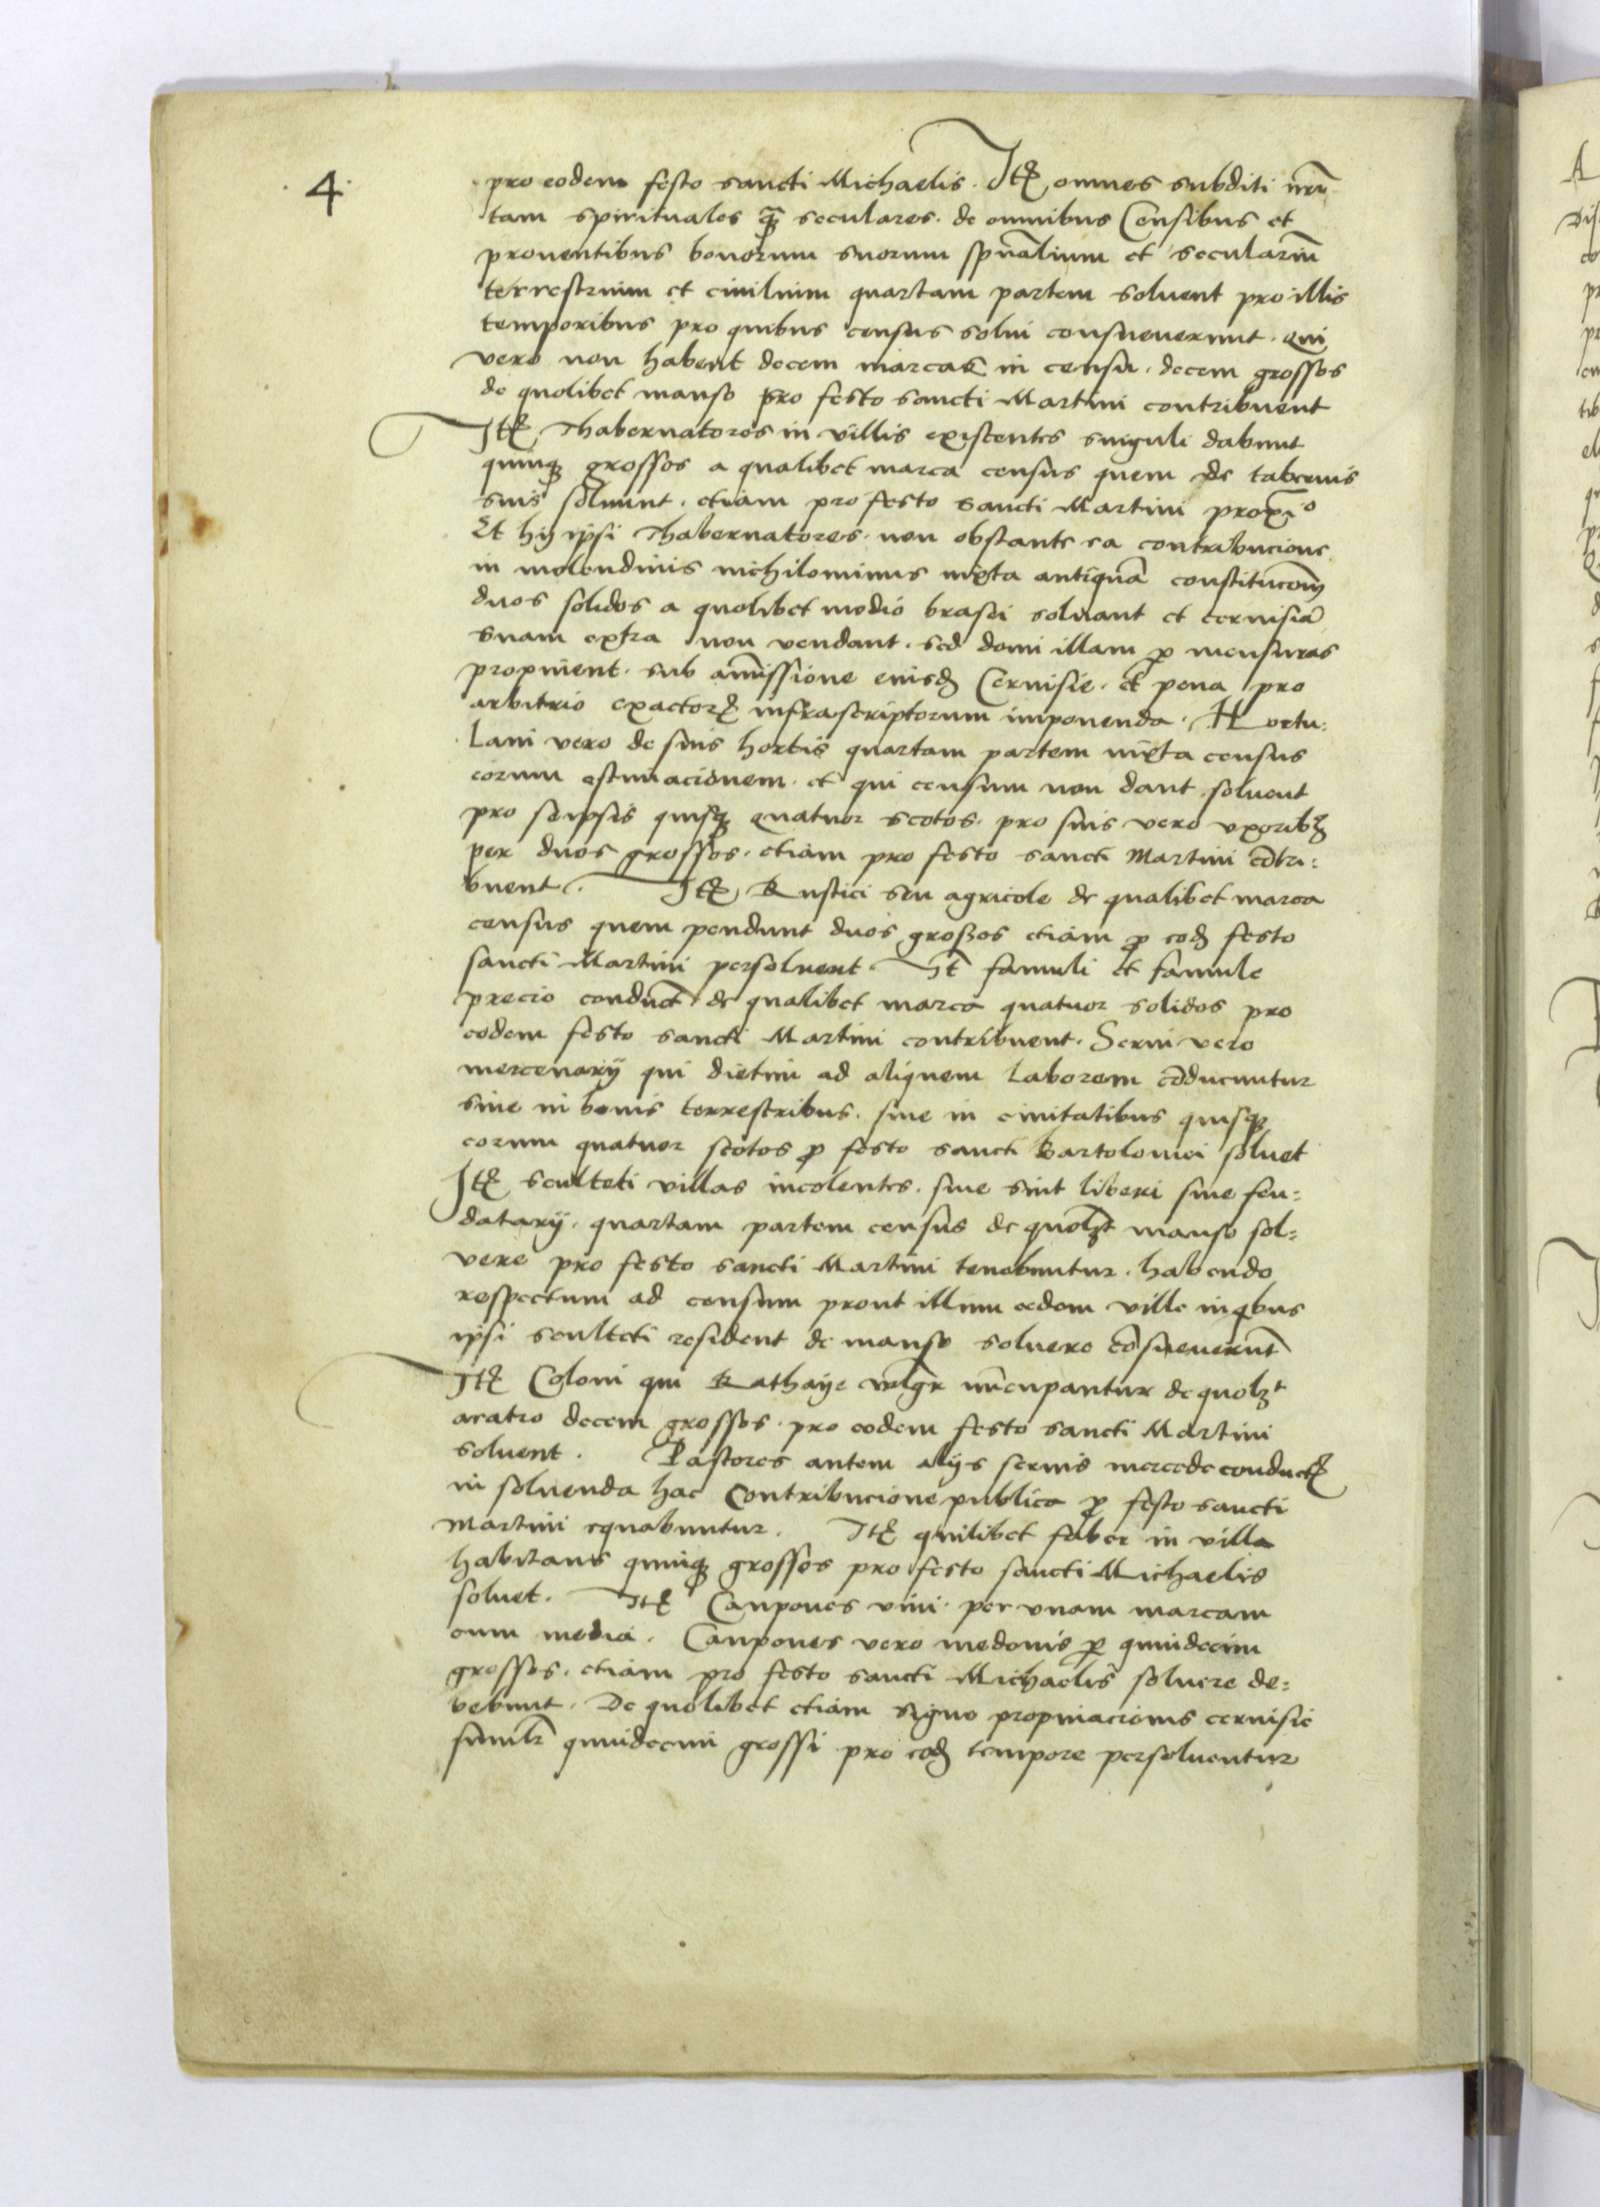 4
pro eodem festo sancti Michaelis. Itē omnes subditi nrī
tam spirituales qȝ seculares. de omnibus Censibus et
prouentibus bonorum suorum spūalium et seculariū
terrestrium et ciuilium quartam partem soluent pro illis
temporibus pro quibus census solui consueuerunt. qui
vero non habent decem marcas in censu. decem grossos
de quolibet manso pro festo sancti Martini contribuent
Itē Thabernatores in villis existentes singuli dabunt
quinqȝ grossos a qualibet marca census quem de tabernis
suis soluunt. etiam pro festo sancti Martini proxīo
Et hij ipsi Thabernatores. non obstante ea contribucione
in molendinis nichilominus iuxta antiquā constitucoēm
duos solidos a quolibet modio brasei soluant et ceruisiā
suam extra non vendant. sed domi illam ꝑ mensuras
propinent. sub amissione eiusdē Ceruisie. et pena pro
arbitrio exactorꝝ infrascriptorum imponenda. Hortu:
lani vero de suis hortis quartam partem iuxta census
eorum estimacionem. et qui censum non dant. soluent
pro seipsis quisqȝ quatuor scotos. pro suis vero vxoribȝ
per duos grossos. etiam pro festo sancti Martini cōtri:
buent. Itē Rustici seu agricole de qualibet marca
census quem pendunt duos grossos etiam ꝓ eodē festo
sancti Martini persoluent. Itē famuli et famule
precio conducti de qualibet marca quatuor solidos pro
eodem festo sancti Martini contribuent. Serui vero
mercenarij qui dietim ad aliquem laborem cōducuntur
siue in bonis terrestribus. siue in ciuitatibus quisqȝ
eorum quatuor scotos ꝓ festo sancti Bartolomei soluet
Itē sculteti villas incolentes. siue sint liberi siue feu:
datarij. quartam partem census de quolȝt manso sol:
vere pro festo sancti Martini tenebuntur. habendo
respectum ad censum prout illimn eedem ville in qbus
ipsi sculteti resident de manso soluere cōsueuerunt
Itē Coloni qui Rathaye vulgr nūcupantur de quolȝt
aratro decem grossos. pro eodem festo sancti Martini
soluent. Pastores autem alijs seruis mercede conductꝭ
in soluenda hac Contribucione publica ꝓ festo sancti
Martini equabuntur. Itē quilibet faber in villa
habitans quinqȝ grossos pro festo sancti Michaelis
soluet. Itē Caupones vini. per vnam marcam
cum media. Caupones vero medonis ꝑ quindecim
grossos. etiam pro festo sancti Michaelis soluere de:
bebunt. De quolibet etiam signo propinacionis ceruisie
similr quindecim grossi pro eodē tempore persoluentur